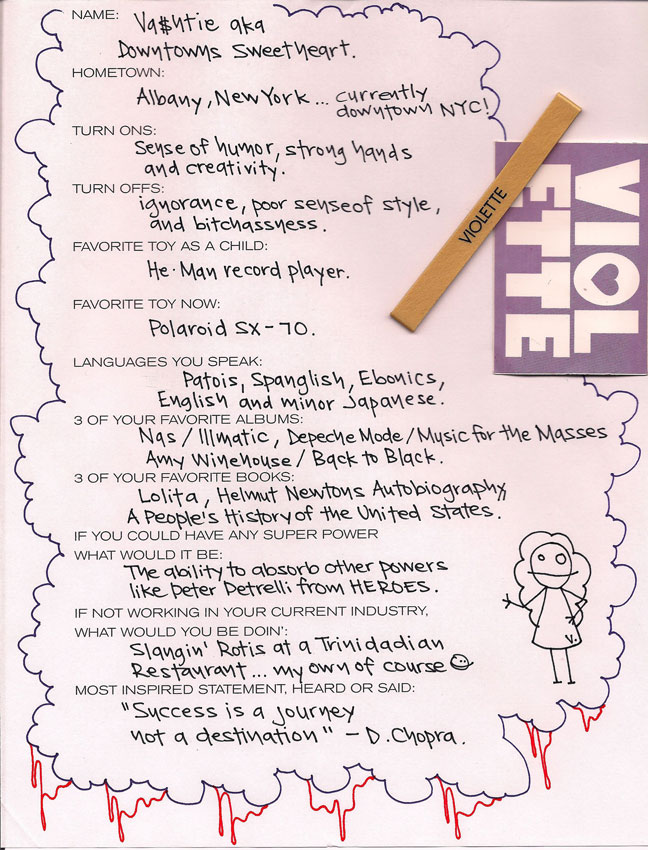 NAME: Va$htie aka
Downtowns Sweetheart.
HOMETOWN:
Albany, New York... currently
downtown NYC!
TURN ONS:
Sense of humor, strong hands
and creativity.
TURN OFFS:
ignorance, poor sense of style,
and bitchassness.
FAVORITE TOY AS A CHILD:
He-Man record player.
FAVORITE TOY NOW:
Polaroid SX-70.
LANGUAGES YOU SPEAK:
Patois, Spanglish, Ebonics,
English and minor Japanese.
3 OF YOUR FAVORITE ALBUMS:
Nas / Illmatic, Depeche Mode / Music for the Masses
Amy Winehouse / Back to Black.
3 OF YOUR FAVORITE BOOKS:
Lolita, Helmut Newtons Autobiography,
A People's History of the United States.
IF YOU COULD HAVE ANY SUPER POWER
WHAT WOULD IT BE:
The ability to absorb other powers
like Peter Petrelli from HEROES.
IF NOT WORKING IN YOUR CURRENT INDUSTRY,
WHAT WOULD YOU BE DOIN':
Slangin' Rotis at a Trinidadian
Restaurant... my own of course
MOST INSPIRED STATEMENT, HEARD OR SAID:
"Success is a journey
not a destination" - D. Chopra.
VIOLETTE
VIOL
ETTE
V.